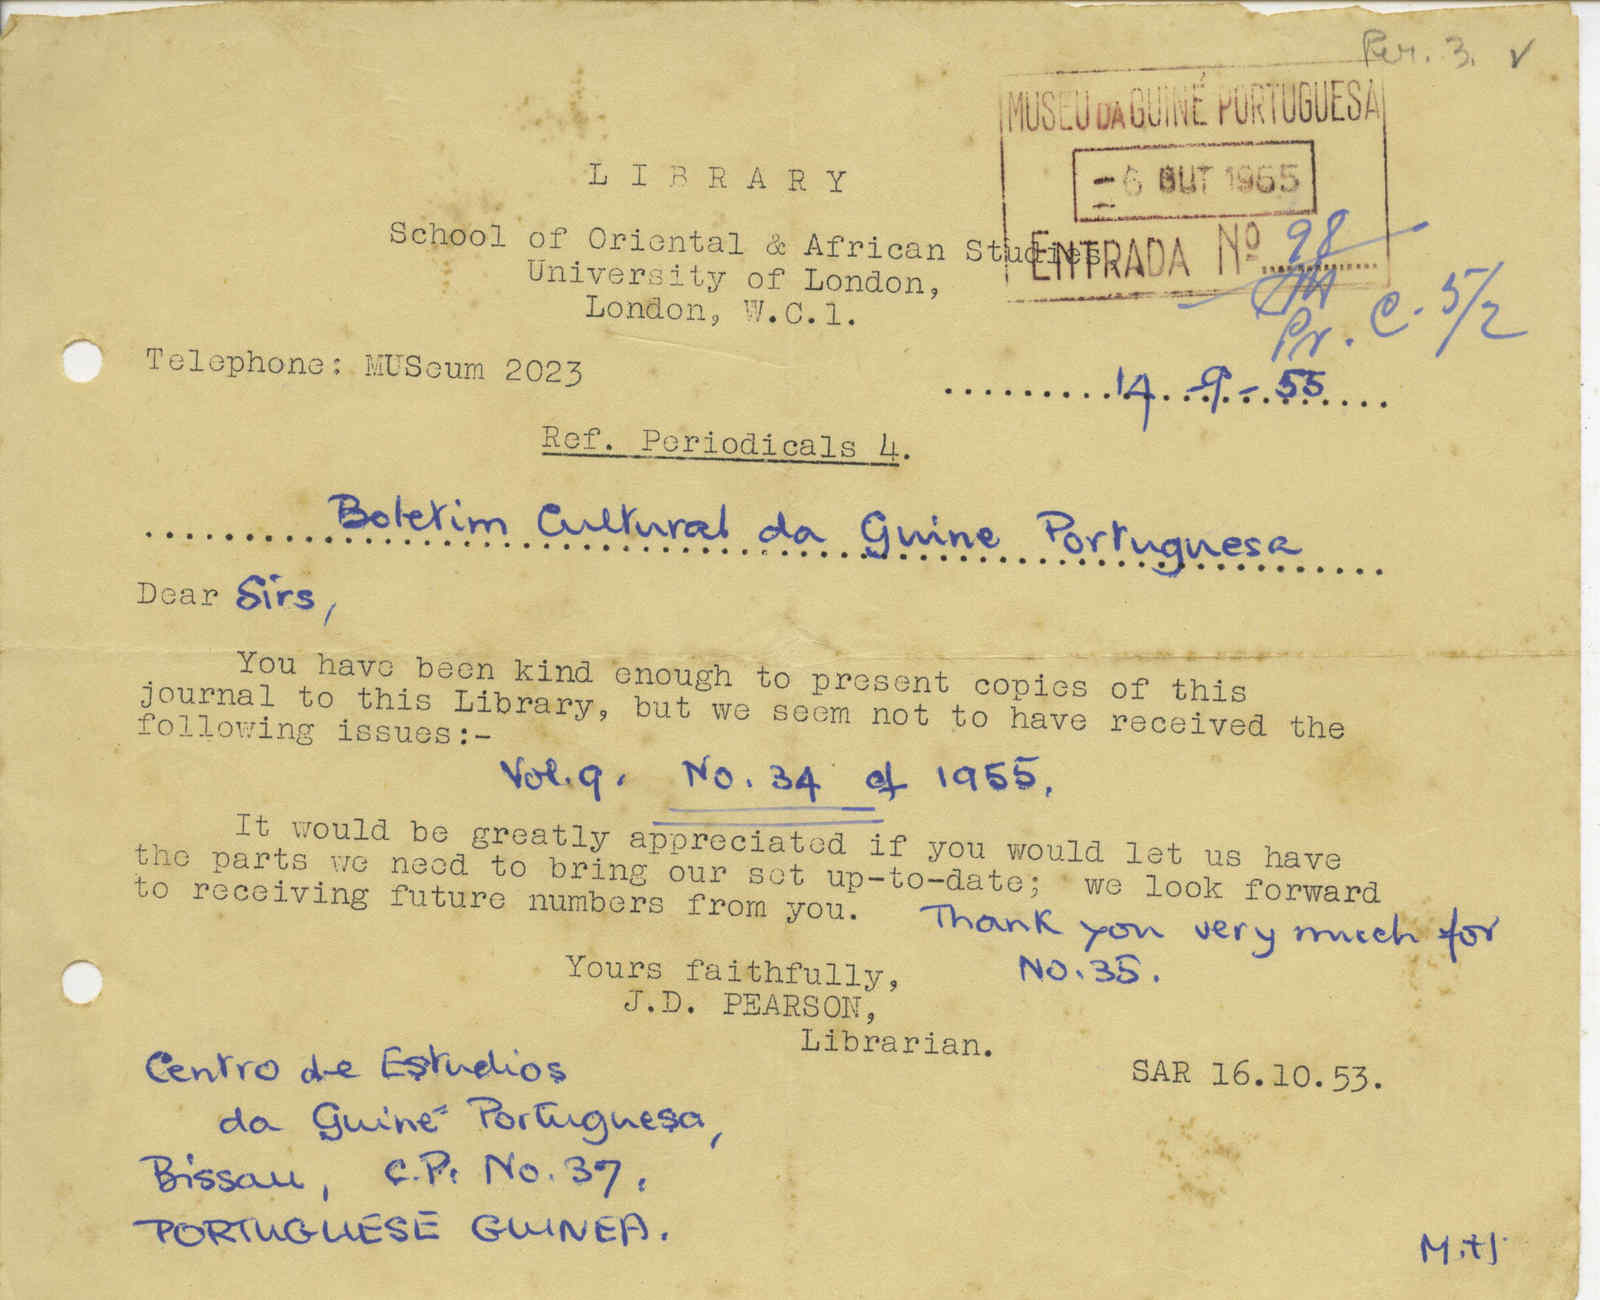 Per. 3. ✓
MUSEU DA GUINÉ PORTUGUESA
-6 OUT 1955
ENTRADA Nº 98
Pr. C. 5/2
L I B R A R Y
School of Oriental & African Studies,
University of London,
London, W.C.1.
Telephone: MUSeum 2023
14-9-55
Ref. Periodicals 4.
Boletim Cultural da Guine Portuguesa
Dear Sirs,
You have been kind enough to present copies of this
journal to this Library, but we seem not to have received the
following issues:-
Vol.9. No. 34 of 1955.
It would be greatly appreciated if you would let us have
the parts we need to bring our set up-to-date; we look forward
to receiving future numbers from you. Thank you very much for
No. 35.
Yours faithfully,
J.D. PEARSON,
Librarian.
SAR 16.10.53.
Centro de Estudios
da Guiné Portuguesa,
Bissau, C.P. No. 37,
PORTUGUESE GUINEA.